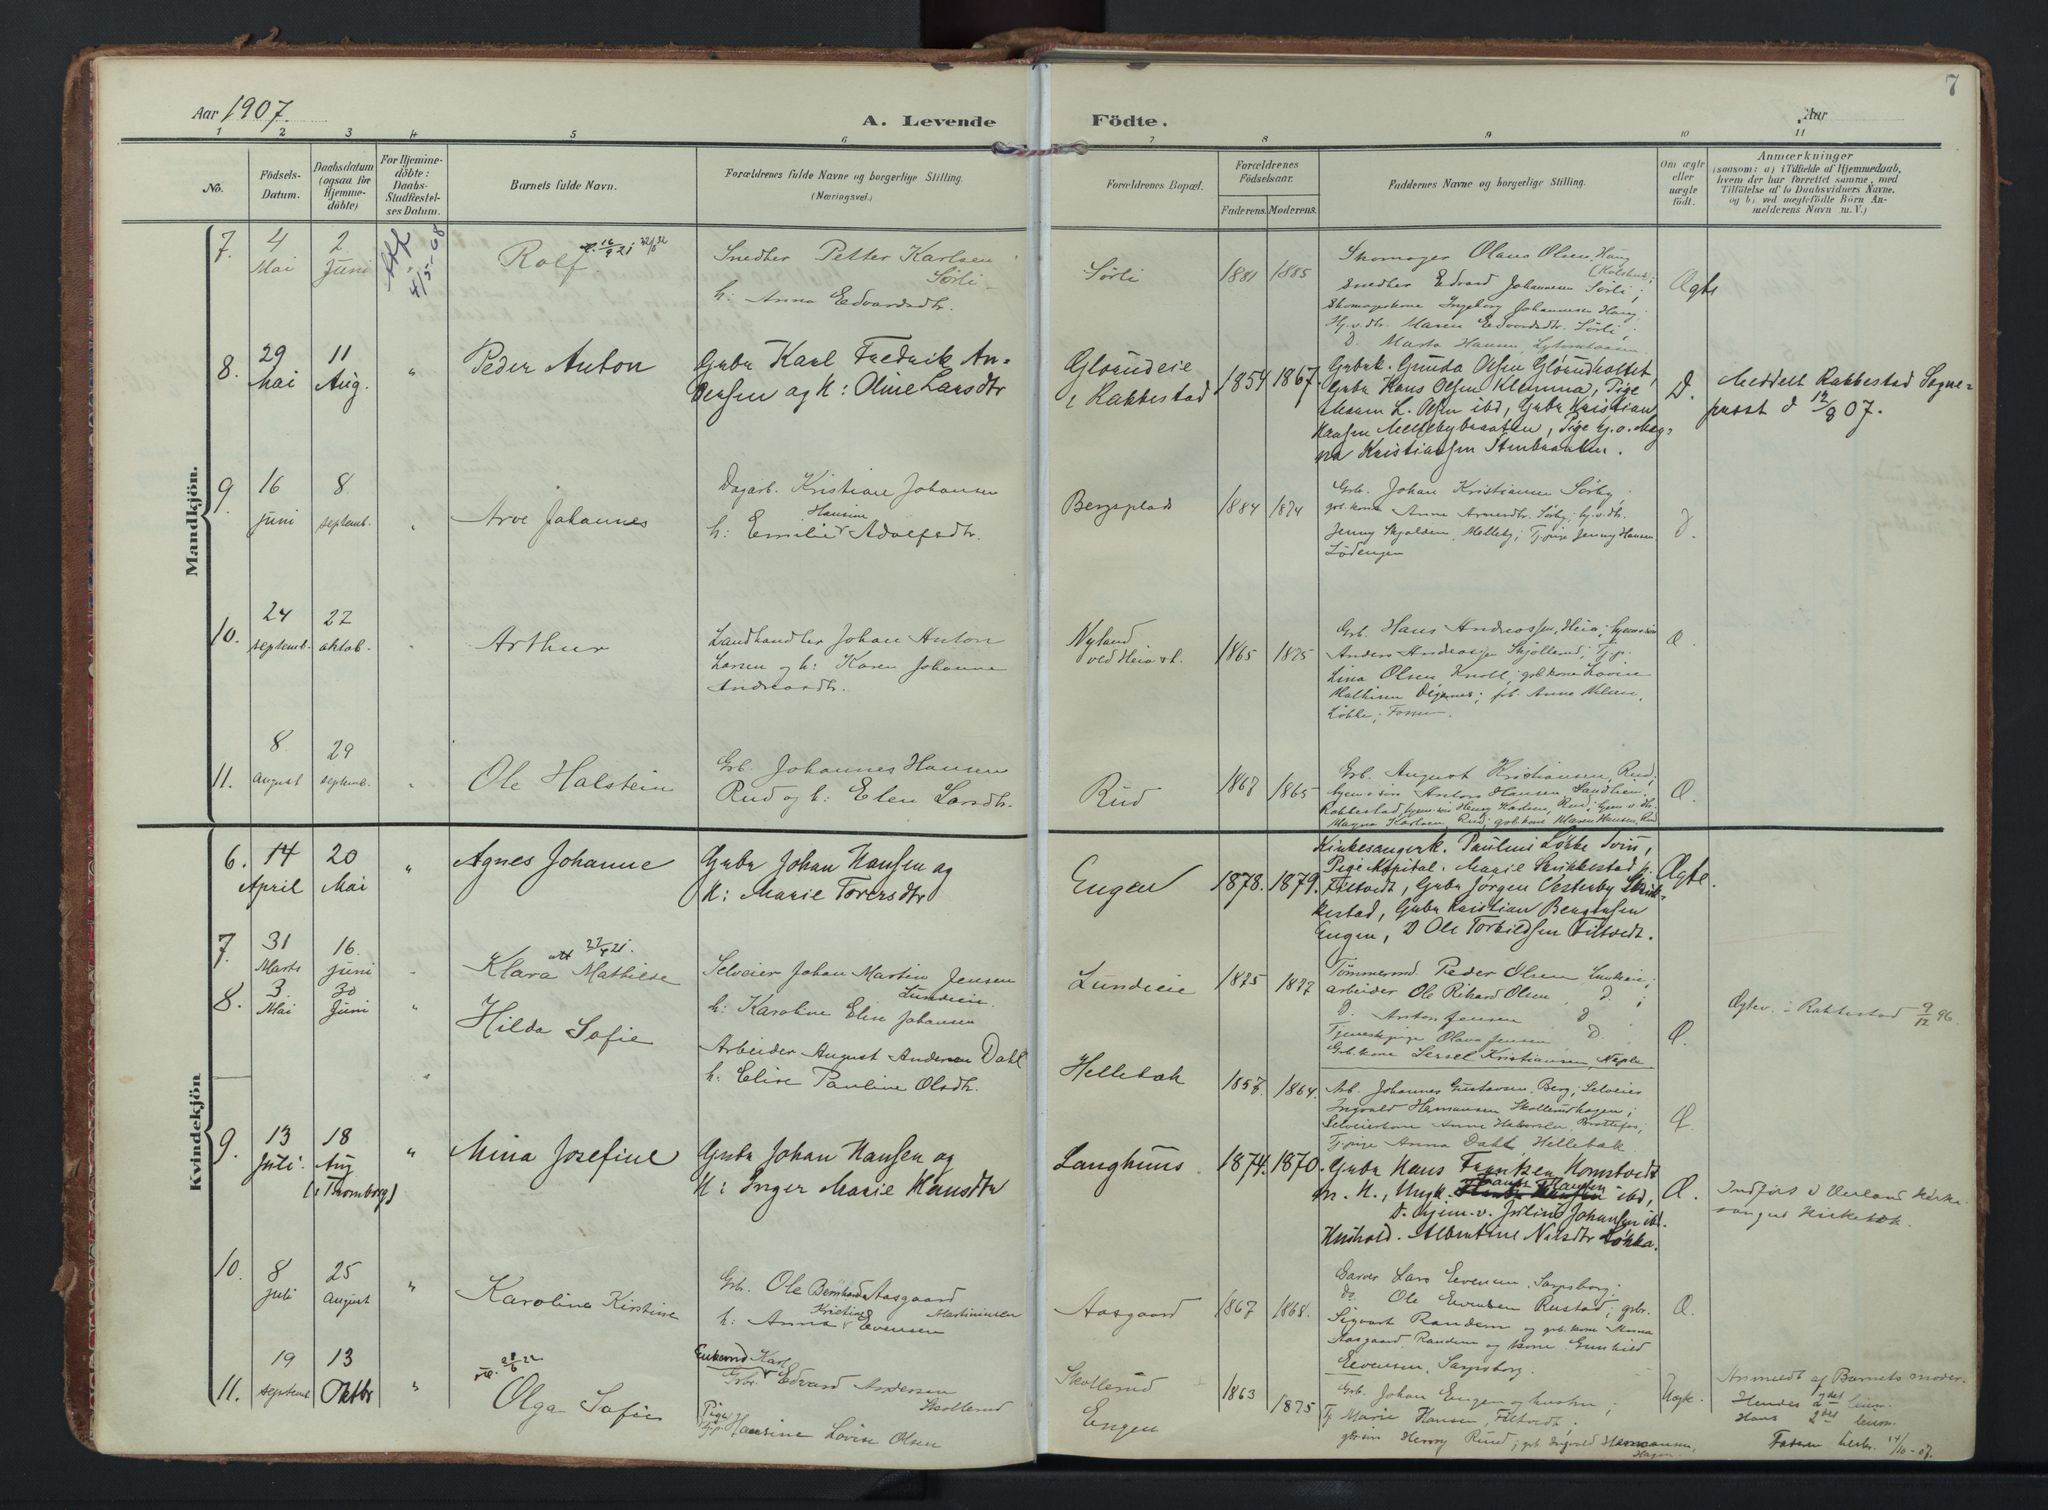 Aar 1907.
A. Levende Födte.
Aar
7
1 2 3 4 5 6 7 8 9 10 11
No.
Födsels-Datum.
Daabsdatum (ogsaa for Hjemme-döbte)
For Hjemme-döbte: Daabs-Stadfæstel-ses Datum.
Barnets fulde Navn.
Forældrenes fulde Navne og borgerlige Stilling.
(Næringsvei.)
Forældrenes Bopæl.
Forældrenes Födselsaar.
Faderens. Moderens.
Faddernes Navne og borgerlige Stilling.
Om ægte eller uægte födt.
Anmærkninger
(saasom: a) i Tilfælde af Hjemmedaab,
hvem der har forrettet samme, med
Tilföielse af to Daabsvidners Navne,
og b) ved uægtefödte Börn An-
melderens Navn m. V.)
Mandkjön.
7. 4 Mai 2 Juni 4/5-08 Rolf 16/9 21
Snedker Petter Karlsen
Sørli
h: Anna Edvardsdtr.
Sørli 1881 1885
Skomager Olaus Olsen, Haug
Snedker Edvard Johannesen Sørli;
Skomagerkone Ingeborg Johannesen Haug;
Hj.v.dtr. Maren Edvardsdtr. Sørli;
D. Marta Hansen
Ægte
8. 29 Mai 11 Aug. " Peder Anton
Gubr Karl Fredrik An-
dersen og K: Oline Larsdtr
Glørudeie i Rakkestad 1854 1867.
Gubrk. Gunda Olsen Glørudholtet,
Gubr Hans Olsen Klemma, Pige
Maren L. Olsen ibd, Gubr Kristian
Hansen Mellebybraaten, Pige hj. v. Mag-
na Kristiansen Stenbraaten.
D.
Meddelt Rakkestad Sogne-
prest d 12/8 07.
9. 16 juni 8 septemb. " Arve Johannes
Dagarb. Kristian Johansen
Hansine
h: Emilie Adolfsdtr.
Bergsplads 1884 1874
Grb. Johan Kristiansen Sørby;
grb.kone Anne Arnesdtr. Sørby; hj.v.dtr.
Jenny Skjolden, Melleby; Tj.pige Jenny Hansen
Lødengen
D
10. 24 septemb. 27 oktob. " Arthur
Landhandler Johan Anton
Larsen og h: Karen Johanne
Andreasdtr.
Nyland ved Heia st. 1865 1875
Grb. Hans Andreassen, Heia; hjemv.søn
Anders Andreassen Skjøllerud; Tj.p.
Lina Olsen Knoll; grb.kone Lovise
Mathisen Degernes; frk. Anne Nilsen,
Løkke; Fossum.
Æ.
11. 8 august 29 septemb. " Ole Halstein
Grb. Johannes Hansen
Rud og h: Elen Larsdtr.
Rud 1867 1865
Grb. August Kristiansen, Rud;
hjemv.søn Anton Hansen, Sandheim,
Rakkestad, hjem.søn Henry Karlsen, Rud; hjem v. dtr.
Magna Karlsen, Rud; grb.kone Maren Hansen, Rud
Æ.
Kvindekjön
6. 14 April 20 Mai " Agnes Johanne
Gubr Johan Hansen og
K: Marie Toversdtr
Engen 1878. 1879.
Kirkesangerk. Pauline Løkke
Pige Kapital. Marie Skrikkestad
Filtvedt, Gubr Jørgen Vesterby Skrik-
kestad, Gubr Kristian Berntsen
Engen, D Ole Torkildsen Filtvedt.
Ægte.
7. 31 Marts 16 juni " Klara Mathilde 22/4 21.
Selveier Johan Martin Jensen
Lundeie
h: Karoline Elise Johansen
Lundeie 1875 1877
Tømmermd Peder Olsen Lundeie;
arbeider Ole Rikard Olsen, D. ;
D. Anton Jensen D
Tjenestepige Olava Jensen D
Grb.kone Sersel Kristiansen,
Æ.
Ægtev. i Rakkestad 9/12 96.
8. 3 Mai 30 Juni " Hilda Sofie
Arbeider August Andersen Dahl
h: Elise Pauline Olsdtr.
Hellebæk 1857 1864.
Arb. Johannes Gustavsen, Berg; Selveier
Ingvald Hermansen Skollerudhagen;
Selveierkone Anne Halvorsen, Brottefos;
Tj.pige Anna Dahl, Hellebæk
Æ.
9. 13 Juli. 18 Aug (i Tromborg) " Mina Josefine
Gubr Johan Hansen og
K: Inger Marie Hansdtr
Langhuus. 1874. 1870.
Gubr Hans Frantzen Komstvedt
m. K., Ungk. Frants Hansen ibd,
D. hjem.v. Julius Johansen ibd.
Hushold. Albertine Nilsdtr Løkka.
Æ.
Indført i Eidsberg Kirke-
sanger Kirkebok.
10. 8 juli 25 August " Karoline Kirstine
Grb. Ole Bernhard Aasgaard
Kristine Martiniusen
h: Anna Evensen
Aasgaard 1867 1868.
Garver Lars Evensen, Sarpsborg;
do. Ole Evensen Rustad; grb.
Sigvart Randem og grb.kone Mina
Aasgaard, Randem og kone Gunhild
Evensen, Sarpsborg.
Æ.
11. 19 septemb 13 Oktbr " Olga Sofie 28/6 22
Enkemd Karl
Grbr. Edvard Andersen
Skollerud
Pige
Tj.p. Hansine Lovise Olsen
Skollerud 1863
Engen 1875
Grb. Johan Engen og hustru;
Tj. Marie Hansen, Filtvedt;
gbr.søn Henry Rud; grb. Ingvald Hermansen,
Hagen.
Uægte.
Anmeldt af Barnets moder.
Hendes 2det leierm.
Hans 2det leierm.
Faderen bekr. 14/10-07.